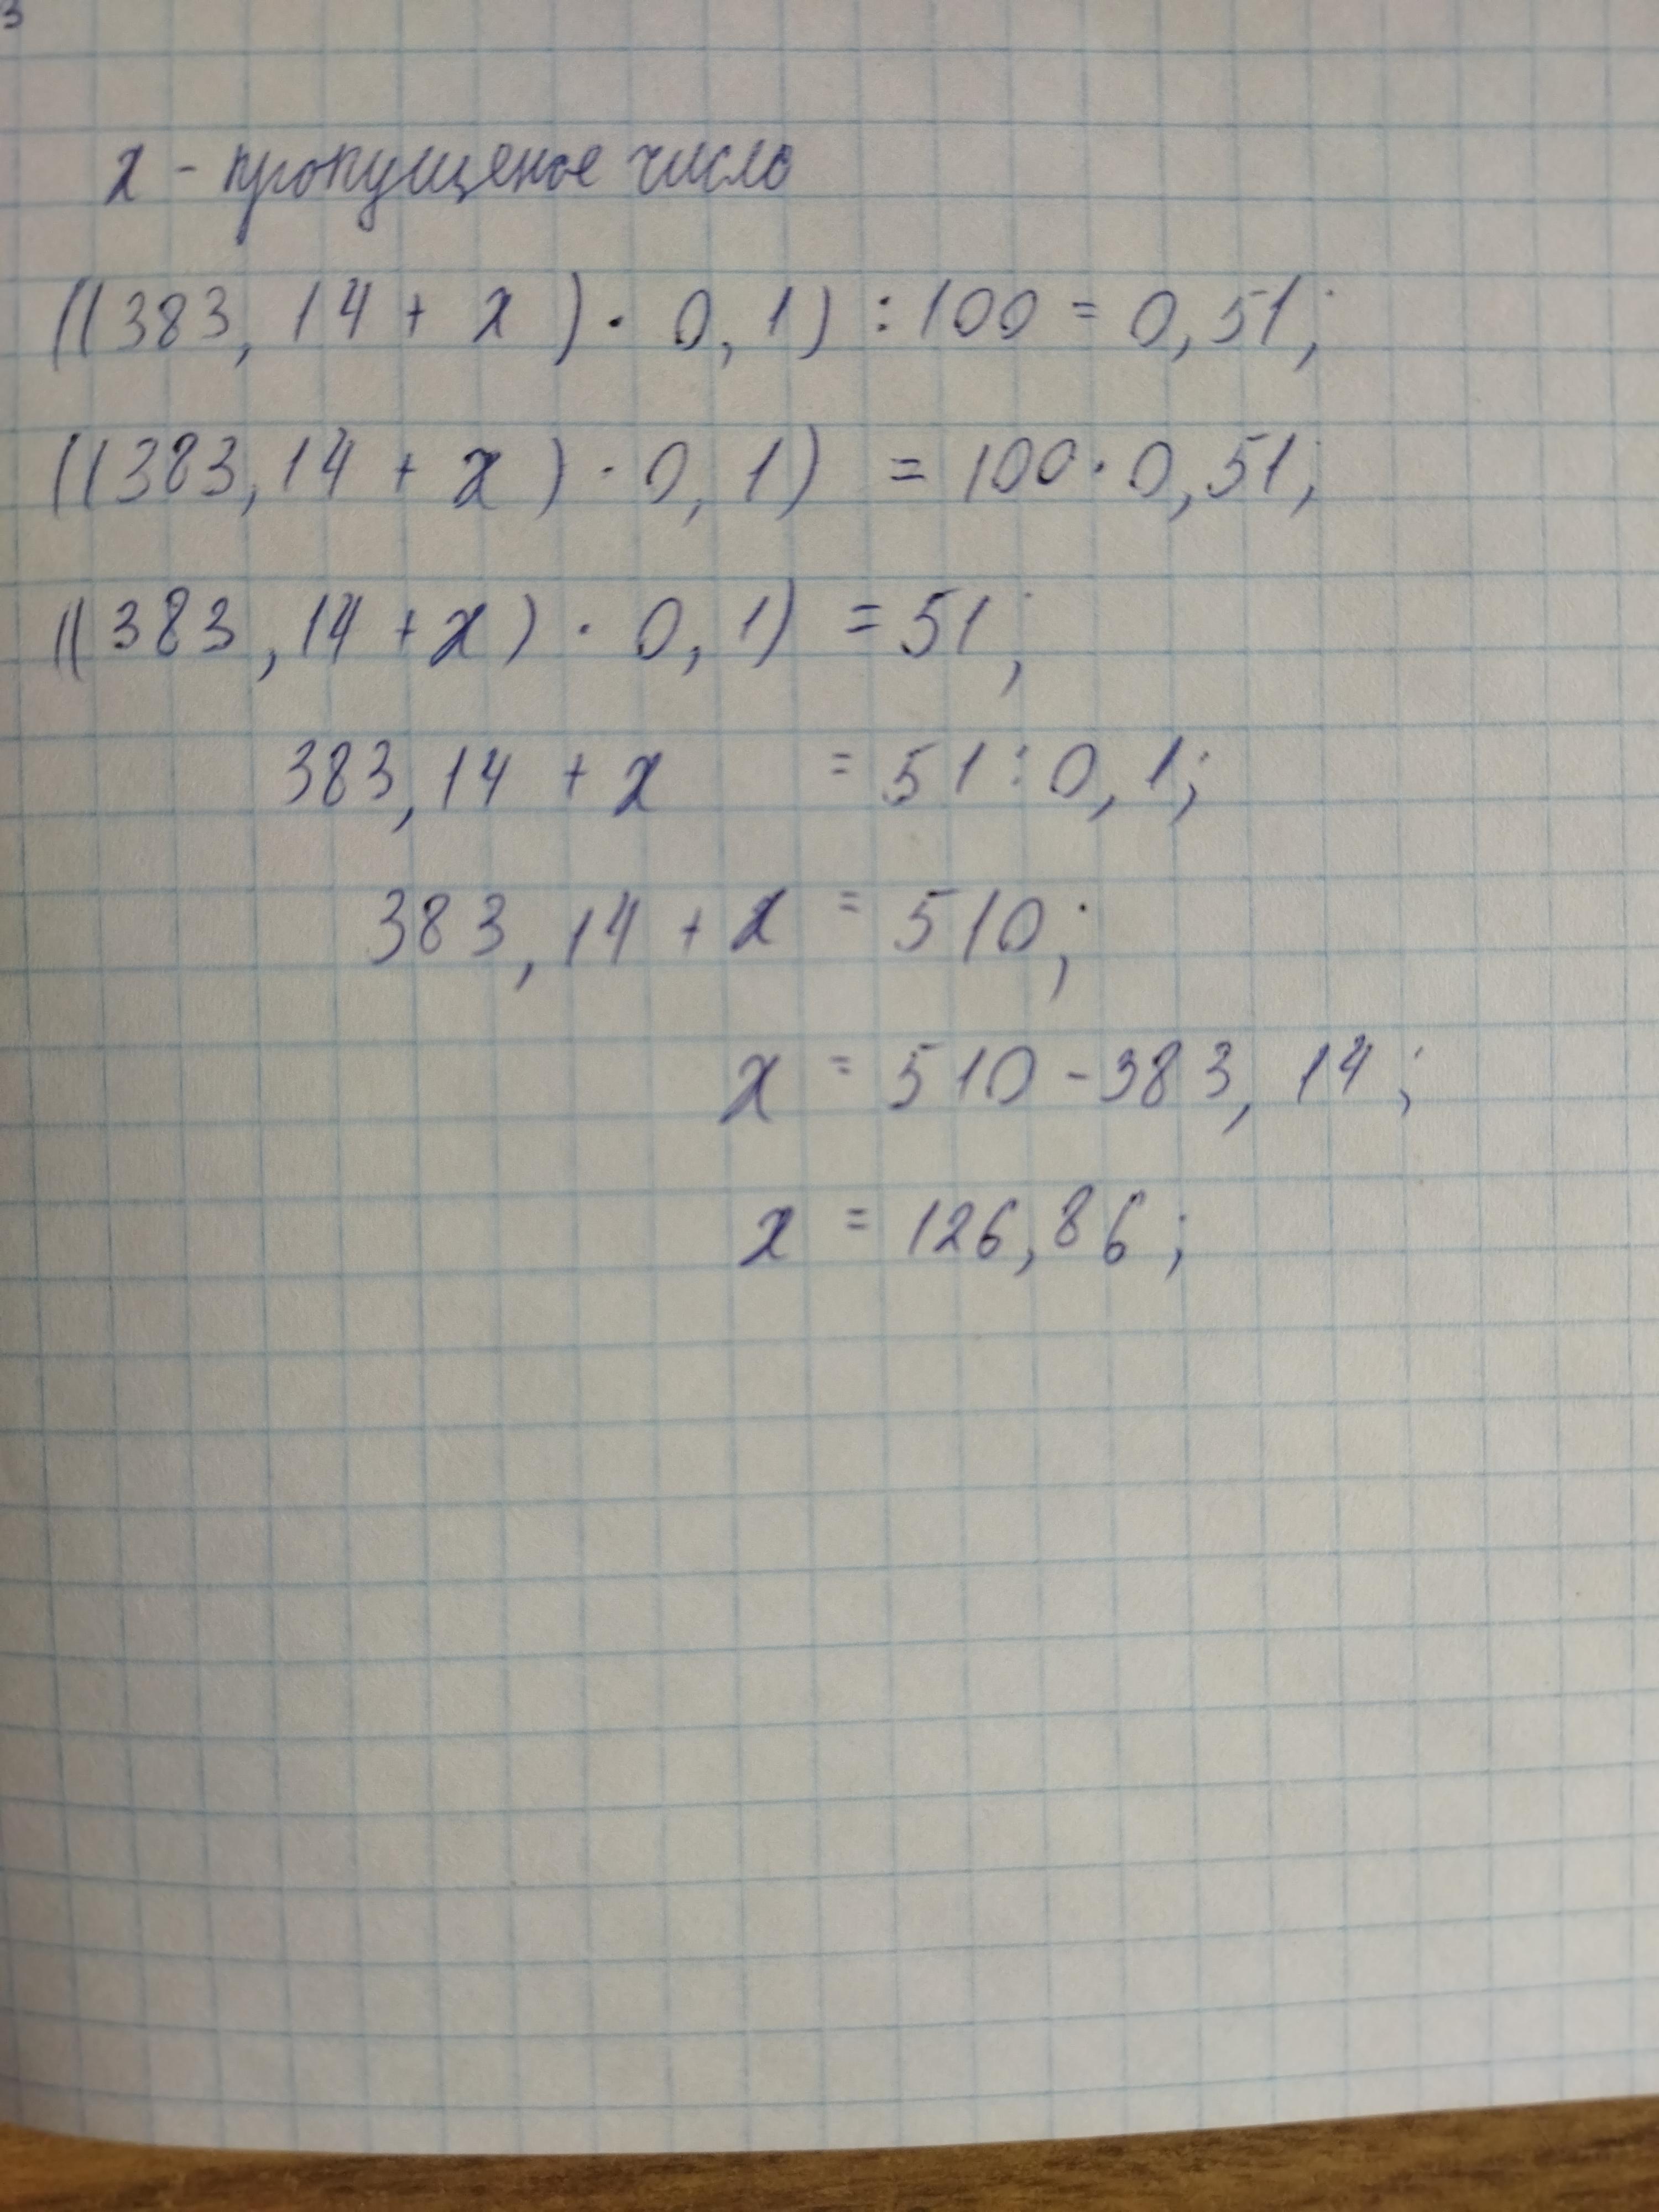 3
x - пропущеное число
((383,14 + x) · 0,1) : 100 = 0,51;
((383,14 + x) · 0,1) = 100 · 0,51;
((383,14 + x) · 0,1) = 51;
383,14 + x = 51 : 0,1;
383,14 + x = 510;
x = 510 - 383,14;
x = 126,86;